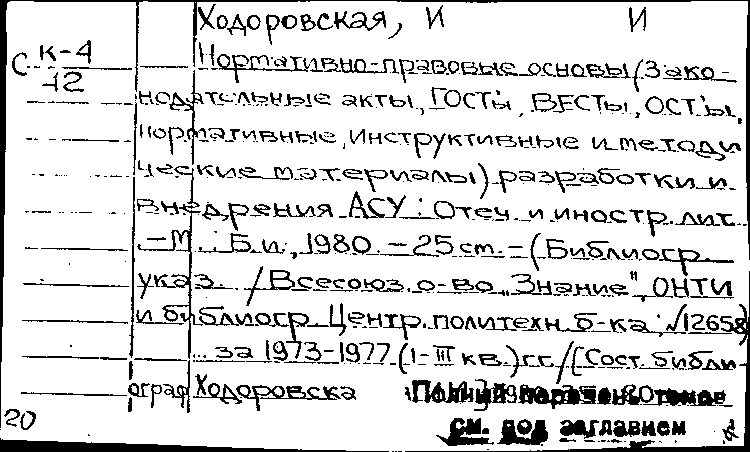 Ходоровская, И И
С К-4
12
Нормативно-правовые основы (Зако-
нодательные акты, ГОСТы, ВЕСТы, ОСТы,
нормативные, инструктивные и методи
ческие материалы) разработки и
внедрения АСУ: Отеч. и иностр. лит.
– М.: Б.и., 1980. – 25 ст. – (Библиогр.
указ. / Всесоюз. о-во „Знание", ОНТИ
и библиогр. Центр. политехн. б-ка; √12658)
... за 1973-1977 (I-III кв.) гг. / [Сост. библи-
ограф Ходоровска И.И.]
Полный перечень томов
см. под заглавием
20